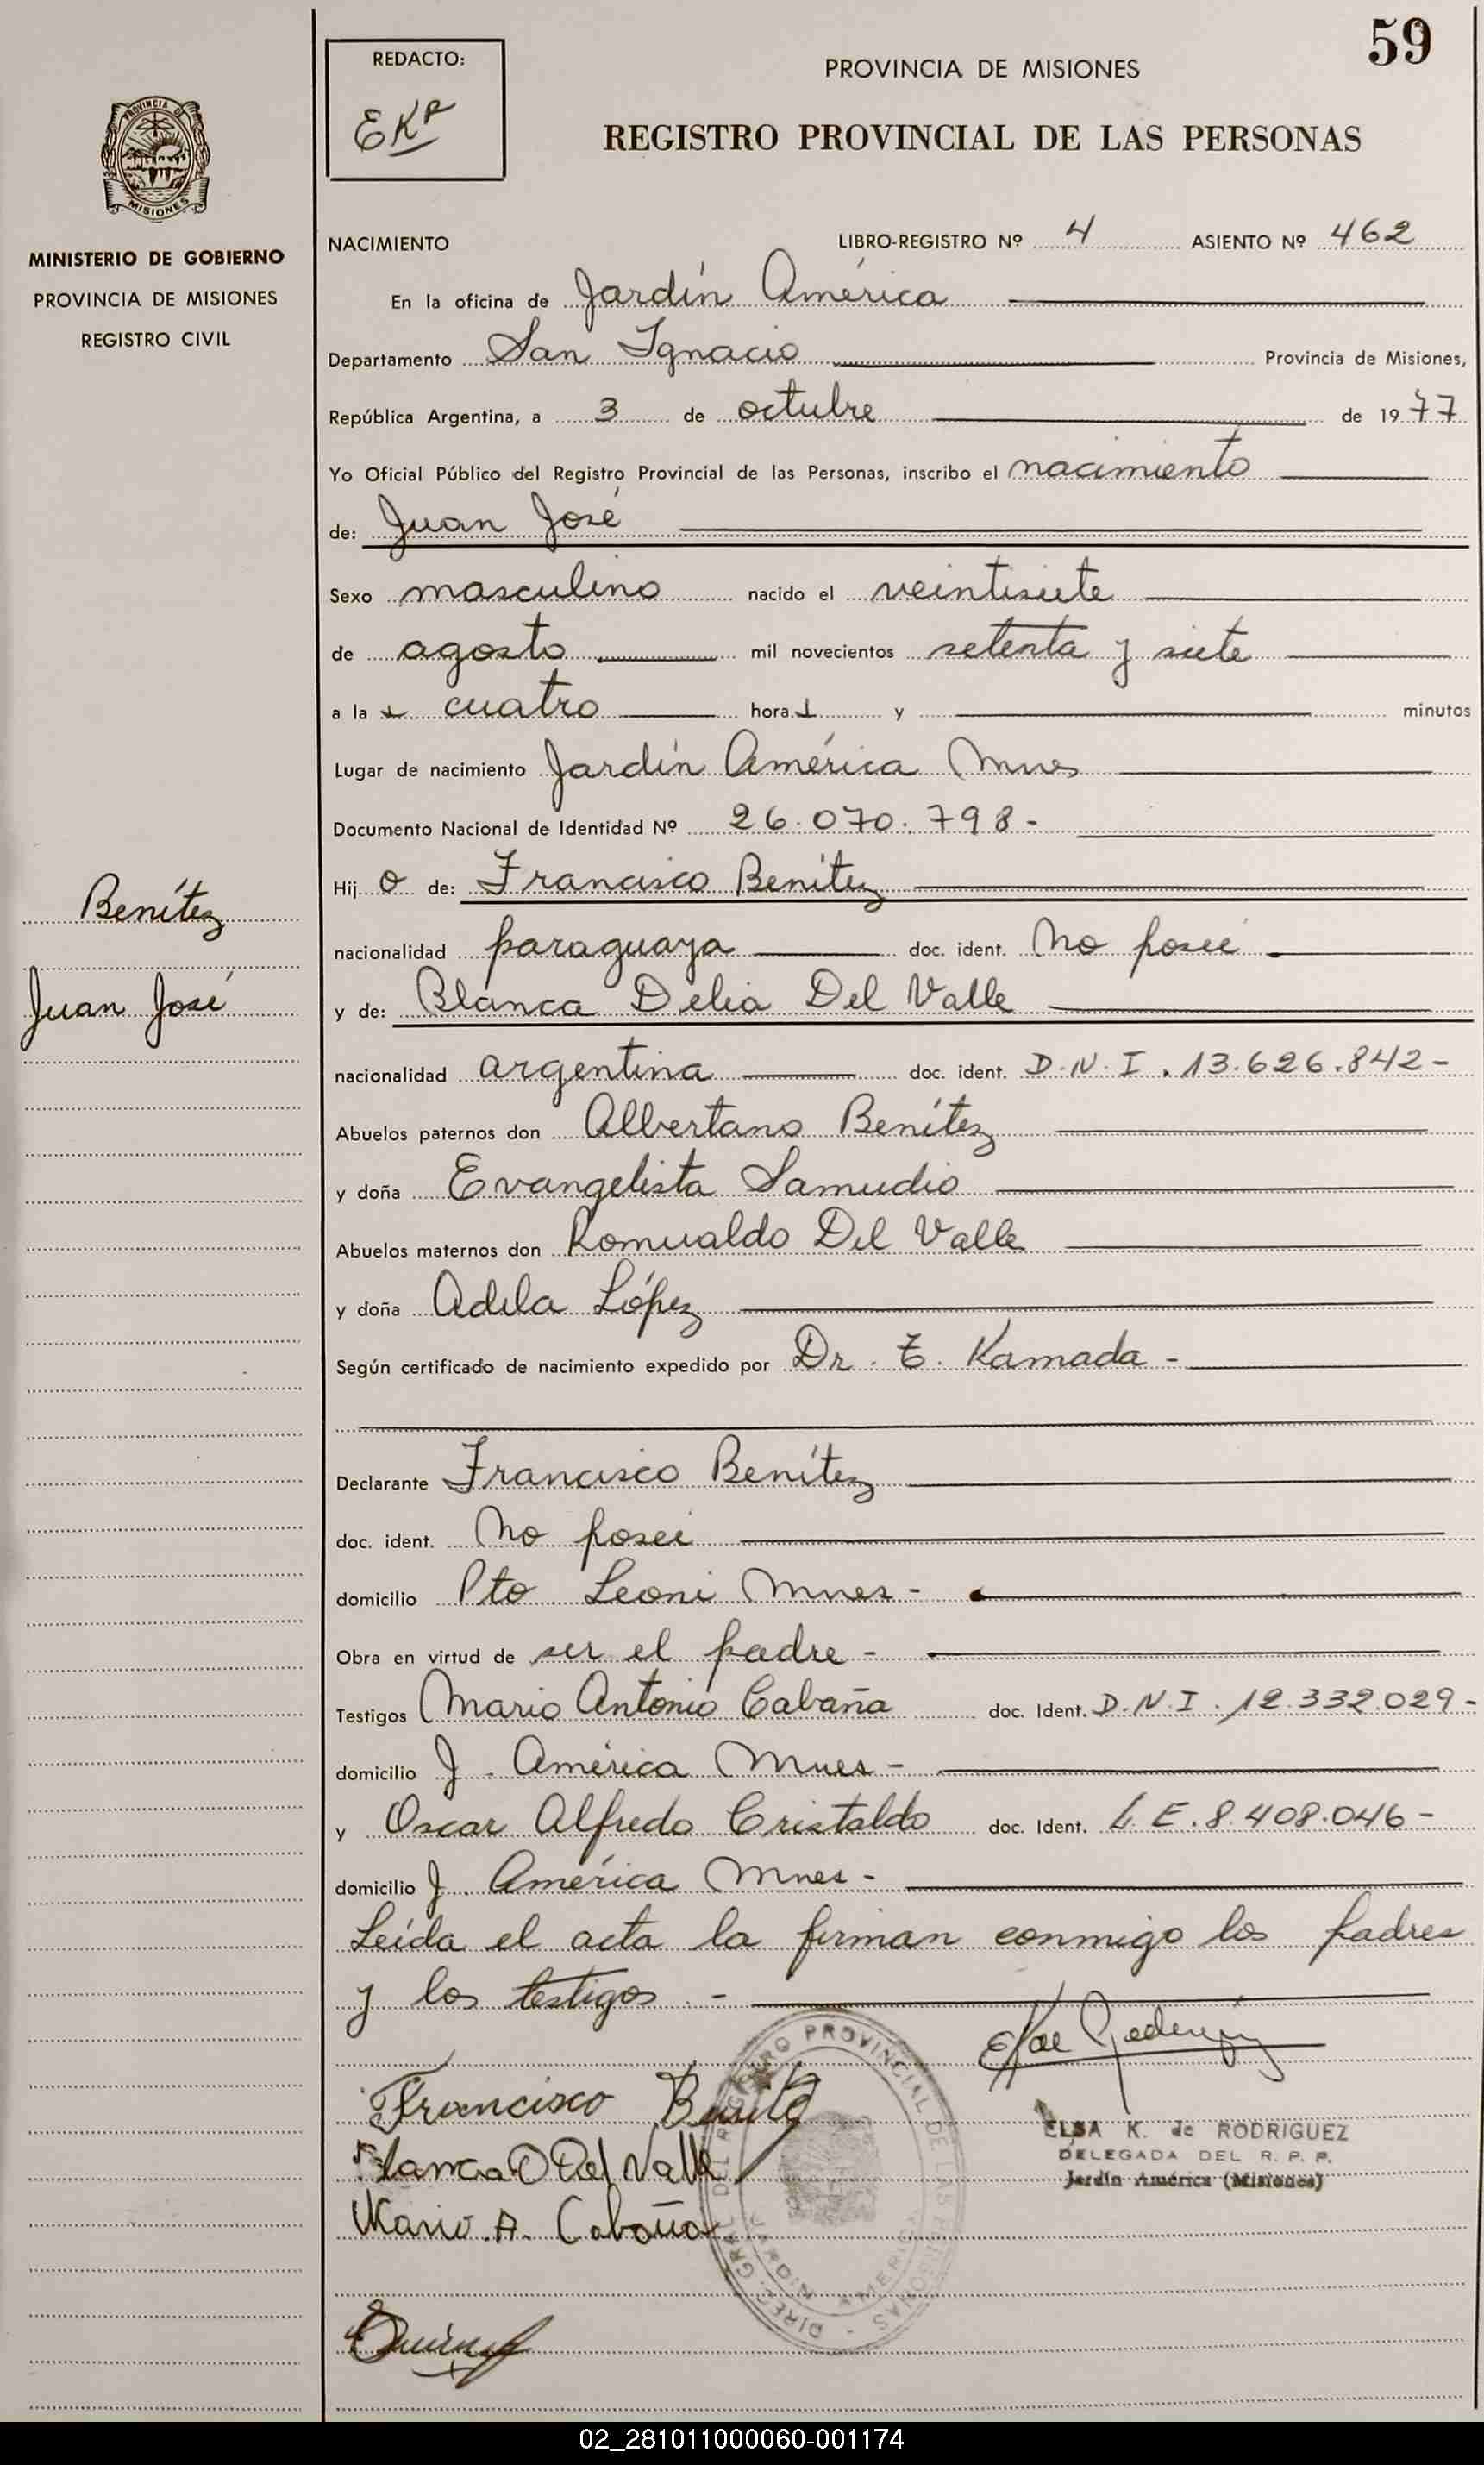 59
REDACTO:
EKR
PROVINCIA DE MISIONES
REGISTRO PROVINCIAL DE LAS PERSONAS
PROVINCIA DE
MISIONES
MINISTERIO DE GOBIERNO
PROVINCIA DE MISIONES
REGISTRO CIVIL
NACIMIENTO LIBRO-REGISTRO Nº 4 ASIENTO Nº 462
En la oficina de Jardín América
Departamento San Ignacio Provincia de Misiones,
República Argentina, a 3 de octubre de 1977
Yo Oficial Público del Registro Provincial de las Personas, inscribo el nacimiento
de: Juan José
Sexo masculino nacido el veintisiete
de agosto mil novecientos setenta y siete
a la s cuatro hora s y minutos
Lugar de nacimiento Jardín América Mnes
Documento Nacional de Identidad Nº 26.070.798-
Hij o de: Francisco Benítez
Benítez
nacionalidad paraguaya doc. ident. No poseé
Juan José
y de: Blanca Delia Del Valle
nacionalidad argentina doc. ident. D.N.I. 13.626.842-
Abuelos paternos don Albertano Benítez
y doña Evangelista Samudio
Abuelos maternos don Romualdo Del Valle
y doña Adela López
Según certificado de nacimiento expedido por Dr. T. Kamada -
Declarante Francisco Benítez
doc. ident. No poseé
domicilio Pto Leoni Mnes-
Obra en virtud de ser el padre -
Testigos Mario Antonio Cabaña doc. Ident. D.N.I. 12.332.029-
domicilio J. América Mnes-
y Oscar Alfredo Cristaldo doc. Ident. L.E. 8.408.046-
domicilio J. América Mnes-
Leída el acta la firman conmigo los padres
y los testigos. -
Francisco Benitez
Blanca D Del Valle
Mario. A. Cabaña
ELSA K. de RODRIGUEZ
DELEGADA DEL R. P. P.
Jardín América (Misiones)
DIREC. GRAL. DEL REGISTRO PROVINCIAL DE LAS PERSONAS
JARDIN AMERICA
02_281011000060-001174